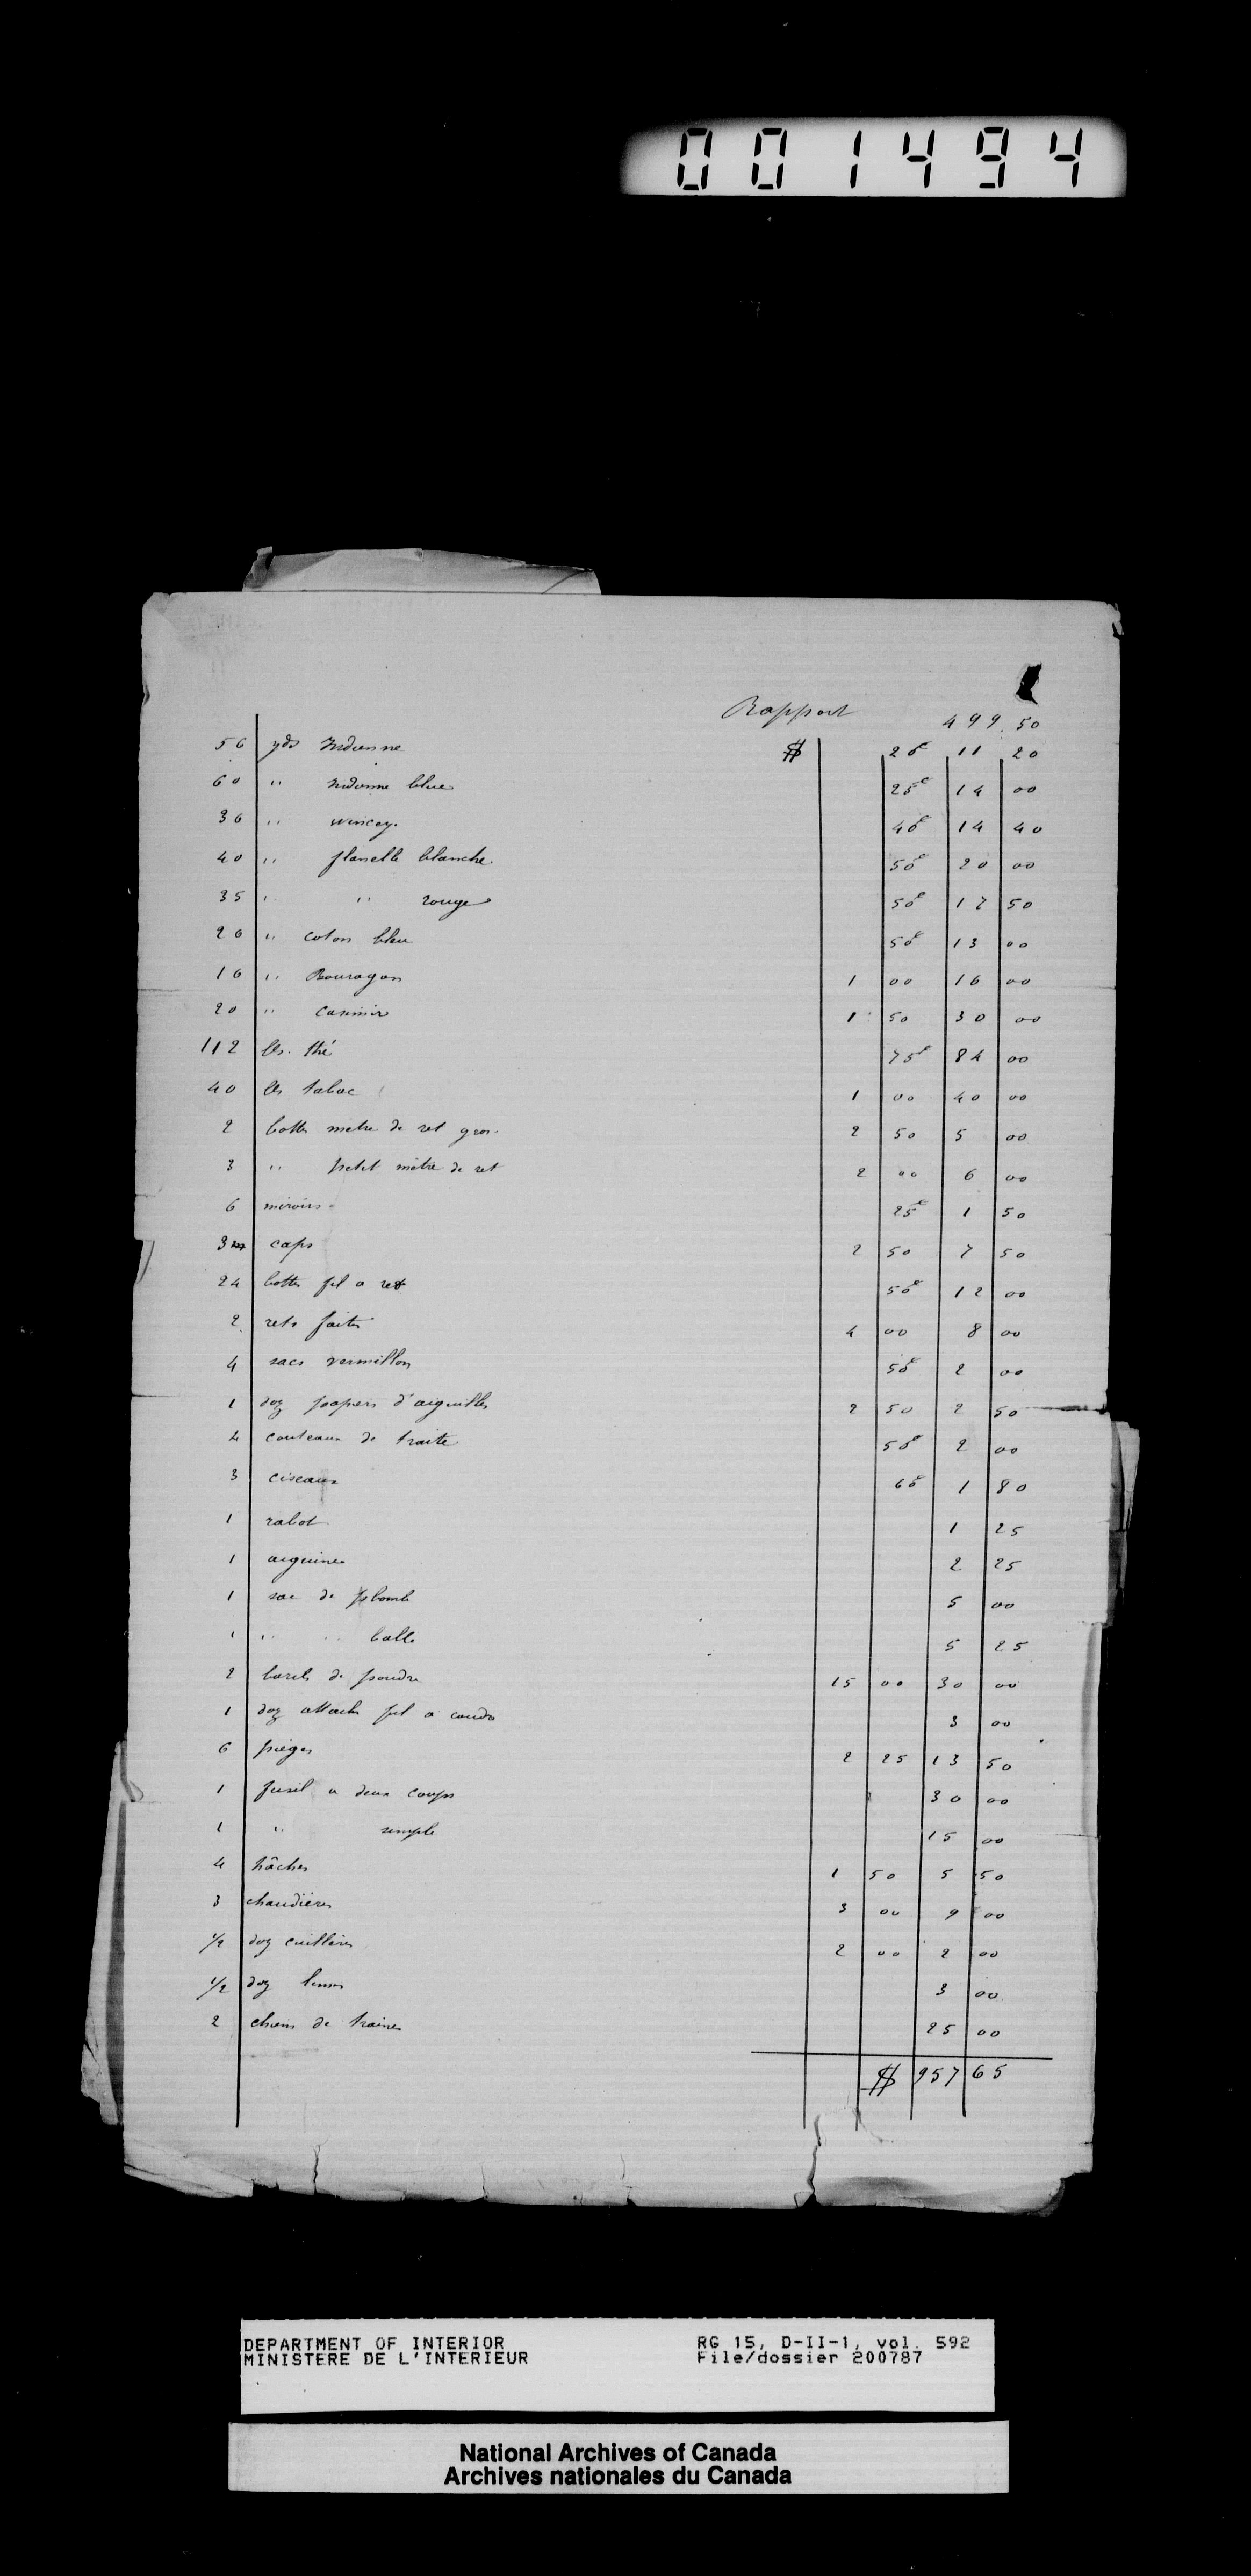 001494
Rapport 499.50
56 yds Indienne $ 20c 11 20
60 " Indienne blue 25c 14 00
36 " wincey. 40c 14 40
40 " flanelle blanche. 50c 20 00
35 " " rouge 50c 17 50
26 " coton bleu 50c 13 00
16 " Bouragan 1 00 16 00
20 " Casimir 1 50 30 00
112 lbs. thé 75c 84 00
40 lbs tabac 1 00 40 00
2 bottes metre de ret gros. 2 50 5 00
3 " petit mètre de ret 2 00 6 00
6 miroirs 25c 1 50
3 caps 2 50 7 50
24 bottes fil a ret 50c 12 00
2 rets faits 4 00 8 00
4 sacs vermillon 50c 2 00
1 doz papiers d'aiguilles 2 50 2 50
4 couteaux de traite 50c 2 00
3 ciseaux 60c 1 80
1 rabot 1 25
1 2 25
1 sac de plomb 5 00
1 " " balle 5 25
2 barils de poudre 15 00 30 00
1 doz attache fil a coudre 3 00
6 pièges 2 25 13 50
1 fusil a deux coups 30 00
1 " simple 15 00
4 hâches 1 50 5 50
3 chaudières 3 00 9 00
1/2 doz cuillères 2 00 2 00
1/2 doz limes 3 00
2 chiens de traine 25 00
$ 957 65
DEPARTMENT OF INTERIOR RG 15, D-II-1, vol. 592
MINISTERE DE L'INTERIEUR File/dossier 200787
National Archives of Canada
Archives nationales du Canada